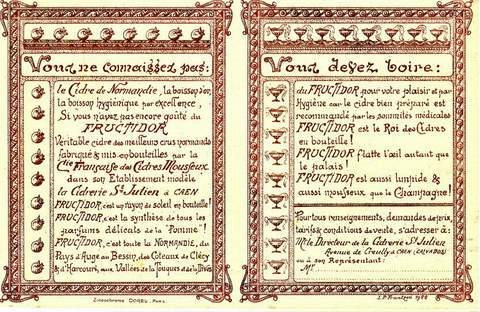 Vous ne connaissez pas:
le Cidre de Normandie, la boisson d'or,
la boisson hygiénique par excellence,
Si vous n'avez pas encore goûté du
FRUCTIDOR
Véritable cidre des meilleurs crus normands
fabriqué & mis en bouteilles par la
Cie Française des Cidres Mousseux
dans son Etablissement modèle
la Cidrerie St Julien à CAEN
FRUCTIDOR, c'est un rayon de soleil en bouteille!
FRUCTIDOR, c'est la synthèse de tous les
parfums délicats de la "Pomme"!
FRUCTIDOR, c'est toute la NORMANDIE, du
Pays d'Auge au Bessin, des Coteaux de Clécy
& d'Harcourt, aux Vallées de la Touques & de la Dives
Vous devez boire:
du FRUCTIDOR pour votre plaisir et par
Hygiène car le cidre bien préparé est
recommandé par les sommités médicales
FRUCTIDOR est le Roi des Cidres
en bouteille!
FRUCTIDOR flatte l'œil autant que
le palais!
FRUCTIDOR est aussi limpide &
aussi mousseux que le Champagne!
Pour tous renseignements, demandes de prix,
tarifs & conditions de vente, s'adresser à:
Mr le Directeur de la Cidrerie St Julien
Avenue de Creully à CAEN (CALVADOS)
ou à son Représentant:
Mr